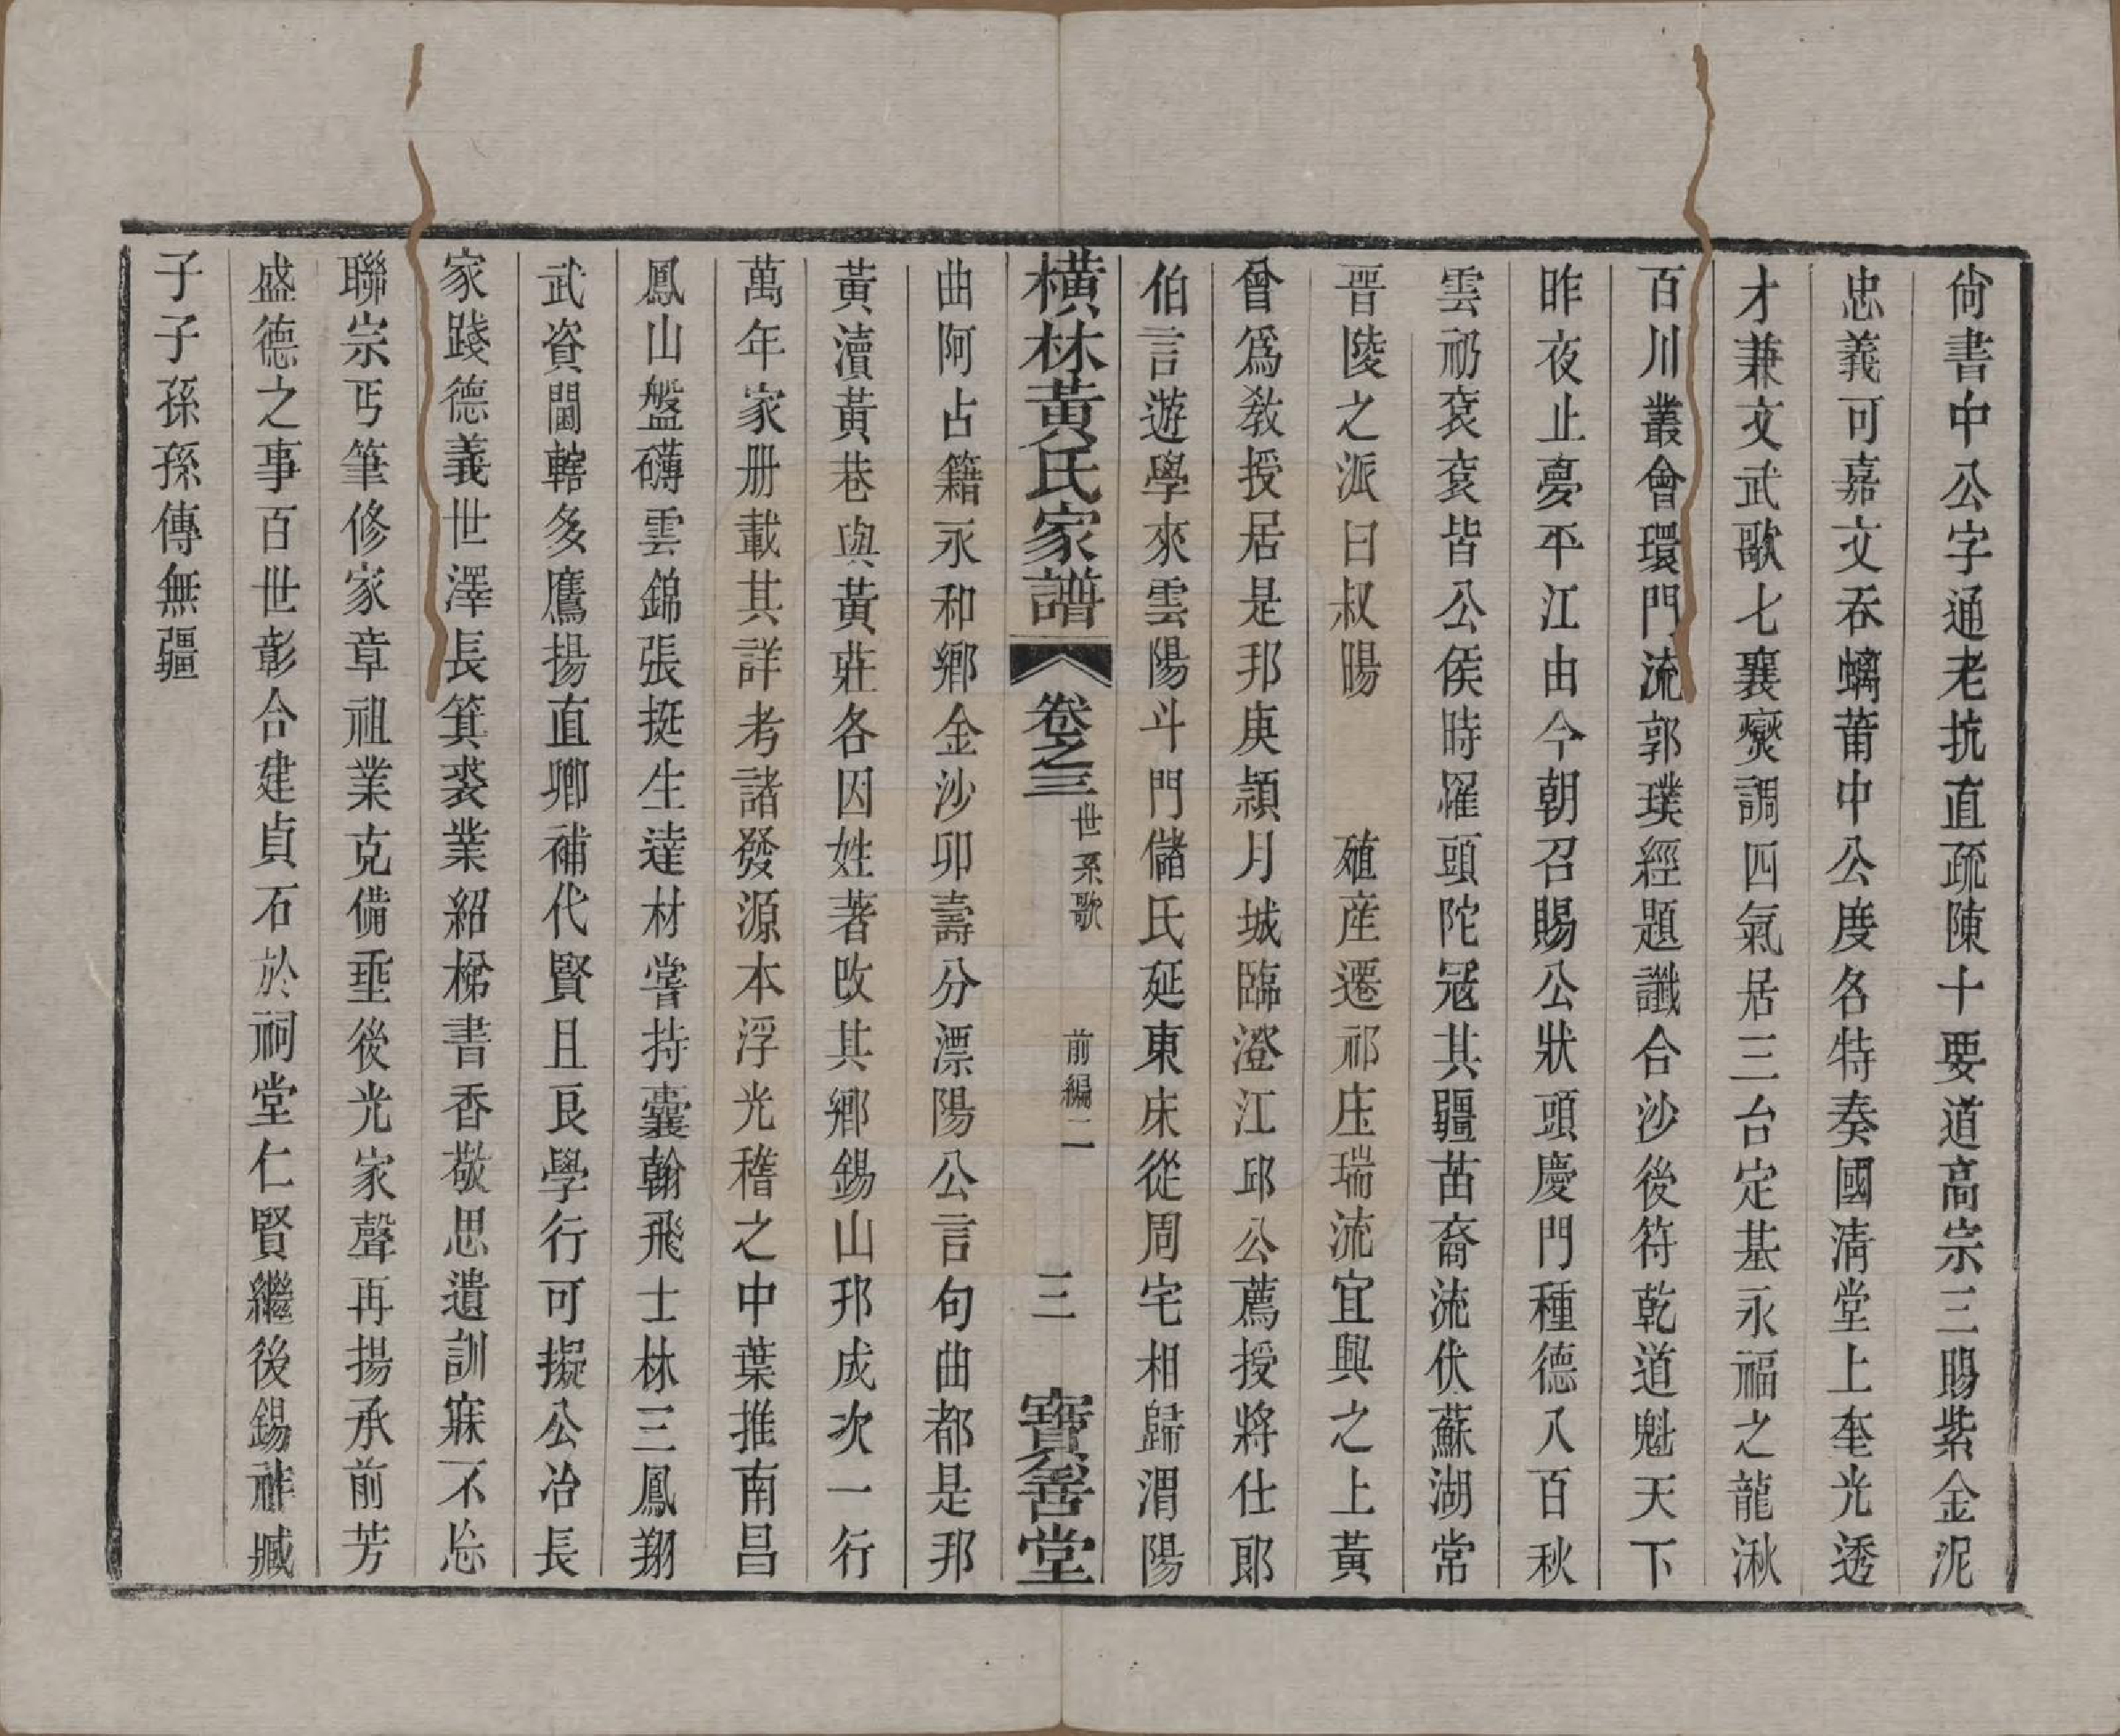 尙書中公字通老抗直疏陳十要道高宗三賜紫金泥
忠義可嘉文吞螭莆中公度各特奏國淸堂上奎光透
才兼文武歌七襄燮調四氣居三台定基永福之龍湫
百川叢會環門流郭璞經題讖合沙後符乾道魁天下
昨夜止夢平江由今朝召賜公狀頭慶門種德八百秋
雲礽袞袞皆公侯時擢頭陀冠其疆苗裔流伏蘇湖常
晋陵之派曰叔暘　殖産遷祁庄瑞流宜興之上黃
曾爲教授居是邦庚顉月城臨澄江邱公薦授將仕郎
伯言遊學來雲陽斗門儲氏延東床從周宅相歸渭陽
橫林黃氏家譜　卷之三　世系歌　前編二　三　寶善堂
曲阿占籍永和鄉金沙卯壽分漂陽公言句曲都是邦
黃瀆黃巷與黃莊各因姓著改其鄉錫山邦成次一行
萬年家册載其詳考諸發源本浮光稽之中葉推南昌
鳳山盤礴雲錦張挺生達材嘗持囊翰飛士林三鳳翔
武資閫轄多鷹揚直卿補代賢且良學行可擬公冶長
家踐德義世澤長箕裘業紹梯書香敬思遺訓寐不忘
聯宗丐筆修家章祖業克備垂後光家聲再揚承前芳
盛德之事百世彰合建貞石於祠堂仁賢繼後錫祚臧
子子孫孫傳無疆